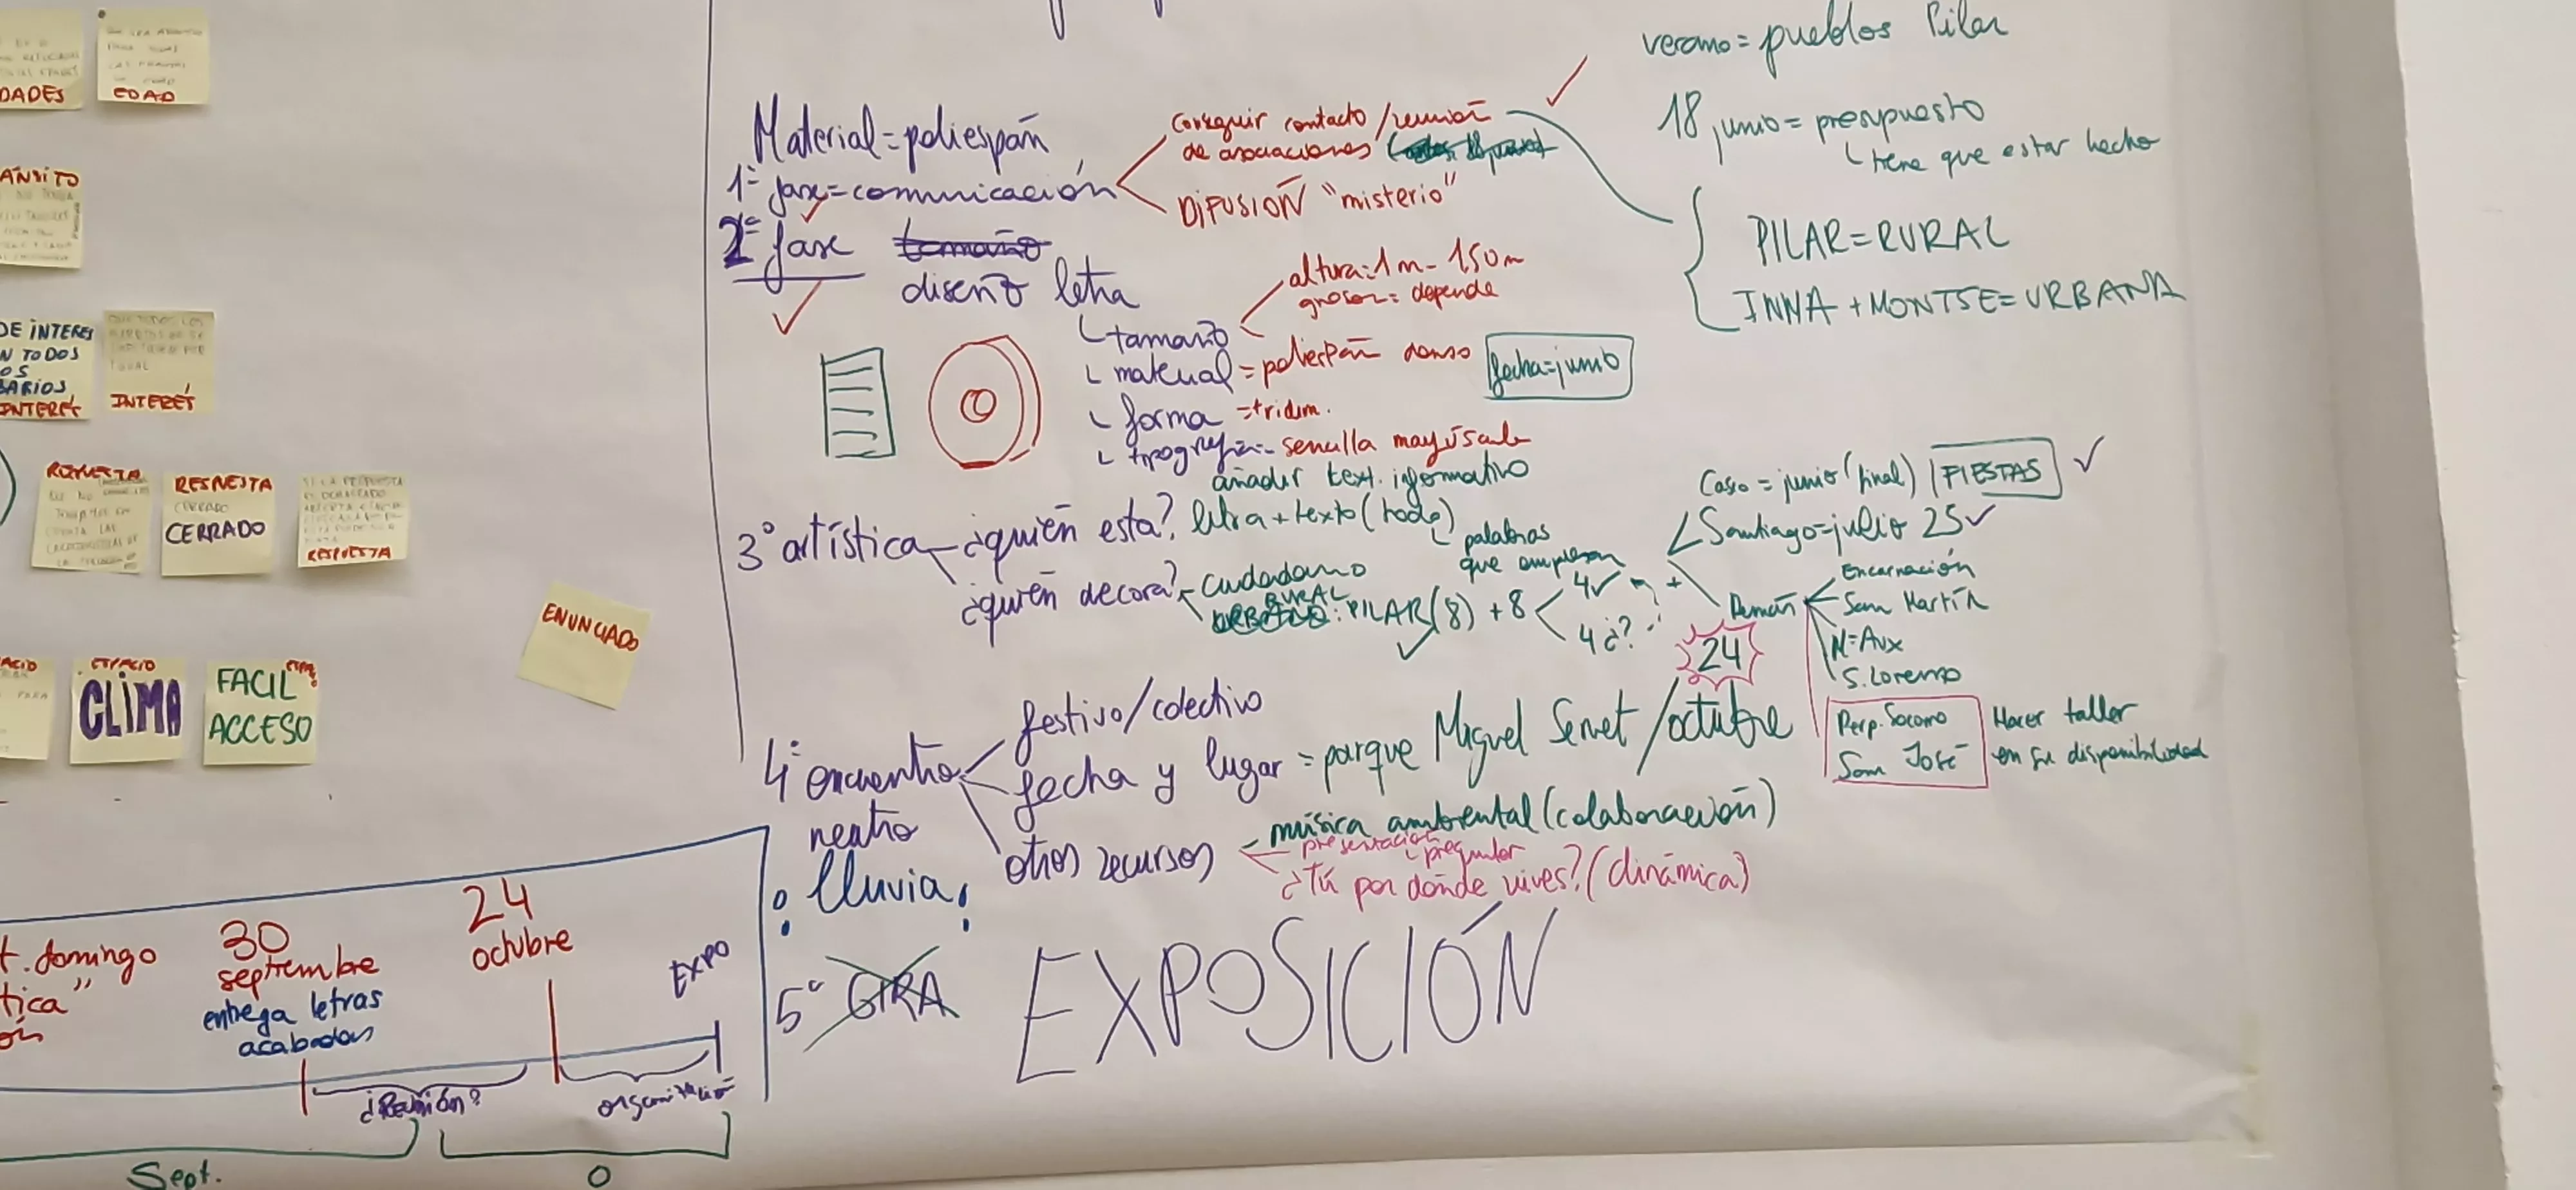 DADES
EDAD
ANSITO
DE INTERES
N TODOS
OS
BARIOS
INTERÉ
INTERÉS
RESPUESTA
RESPUESTA
CERRADO
CERRADO
RESPUESTA
ENUNCIADO
ESPACIO
CLIMA
FACIL
ACCESO
t. domingo
tica"
30
septiembre
entrega letras
acabadas
24
octubre
EXPO
¿Reunión?
organización
Sept.
O
Material=poliespan
1ª fase=comunicación
conseguir contacto/reunión
de asociaciones
DIFUSIÓN "misterio"
2ª fase
diseño letra
tamaño
altura=1m-1,50m
grosor= depende
material=poliespan denso
fecha=junio
forma =tridim.
tipografía= sencilla mayúscula
añadir text. informativo
3º artística
¿quién esta? letra+texto(todo)
palabras
que empiezan
¿quién decora?
ciudadano
RURAL
: PILAR(8) +8
4✓
4 ¿?
verano= pueblos Pilar
18 junio= presupuesto
tiene que estar hecho
PILAR=RURAL
INNA +MONTSE=URBANA
Caso = junio (final) FIESTAS ✓
Santiago=julio 25✓
Encarnación
San Martín
Mª Aux
S. Lorenzo
Perp. Socorro
San José
Hacer taller
en su disponibilidad
24
4ª encuentro
neutro
festivo/colectivo
fecha y lugar = parque Miguel Servet/octubre
otros recursos
música ambiental(colaboración)
presentación
preguntar
¿Tú por dónde vives?(dinámica)
¡lluvia!
5ª GIRA EXPOSICIÓN